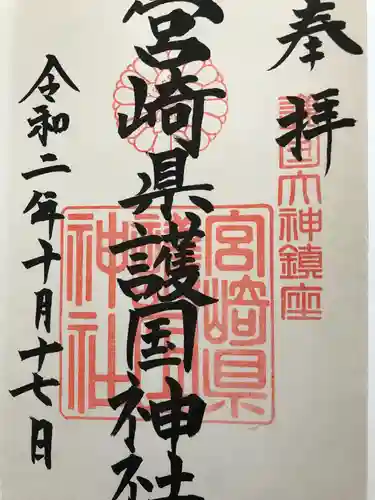 奉拝
護国大神鎮座
宮崎県護国神社
宮崎県
護国
神社
令和二年十月十七日